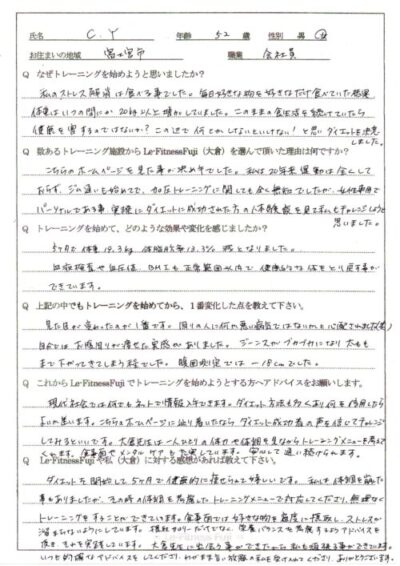 氏名 C.Y 年齢 52 歳 性別 男 女
お住まいの地域 富士宮市 職業 会社員
Q なぜトレーニングを始めようと思いましたか?
私のストレス解消は食べる事でした。毎日好きな物を好きなだけ食べていた結果
体重はいつの間にか20kg以上増加していました。このままの食生活を続けていたら
健康を害するのではないか?この辺で何とかしないといけない!と思いダイエットを決意
しました。
Q 数あるトレーニング施設から Le-FitnessFuji(大倉)を選んで頂いた理由は何ですか?
こちらのホームページを見た事が決め手でした。私は20年来運動は全くして
おらず、ジム通いも初めてで、加圧トレーニングに関しても全く無知でしたが、女性専用で
パーソナルである事、実際にダイエットに成功された方の体験談を見て私もチャレンジしようと
思いました。
Q トレーニングを始めて、どのような効果や変化を感じましたか?
5ヶ月で体重19.3kg 体脂肪率13.3%減となりました。
血液検査や血圧値、BMIも正常範囲以内で健康的な体をとり戻す事が
できています。
Q 上記の中でもトレーニングを始めてから、1番変化した点を教えて下さい。
見た目が変わったのが1番です。周りの人に何か悪い病気ではないかと心配されたり(笑)
自分ではお腹周りが痩せた実感がありました。ジーンズがブカブカになり太もも
まで下がってきてしまう程でした。腹囲測定では-18cmでした。
Q これから Le-FitnessFuji でトレーニングを始めようとする方へアドバイスをお願いします。
現代社会では何でもネットで情報入手できます。ダイエット方法も多くあり何を信用したら
よいか迷います。こちらのホームページに辿り着いたなら、ダイエット成功者の声を信じてチャレンジ
してみるといいです。大倉先生は一人ひとりの体力や体調を見ながらトレーニングメニューを考えて
くれます。食事面やメンタルケアも充実しています。安心して通い続けられます。
Q Le-FitnessFuji や私(大倉)に対する感想があれば教えて下さい。
ダイエットを開始して5ヶ月で健康的に痩せられて嬉しいです。私も体調を崩した
事もありましたが、その時の体調を考慮したトレーニングメニューで対応してくださり、無理なく
トレーニングをすることができています。食事面では好きな物を適度に摂取し、ストレスが
溜まらないようにしています。摂取カロリーだけでなく、栄養バランスを考慮するようアドバイスを
頂き、それを実践しています。大倉先生に出会う事ができたから私も頑張る事ができています。
いつも的確なアドバイスをしてくださり、ありがとうございます。